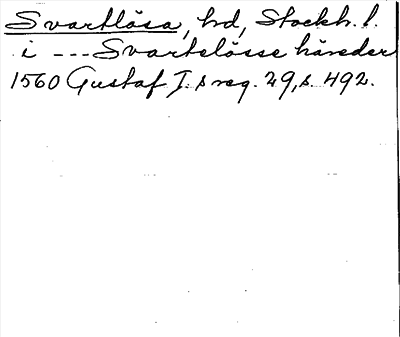 Svartlösa, hd, Stockh. l.
i --- Svartelösse häreder
1560 Gustaf I. s reg. 29, s. 492.